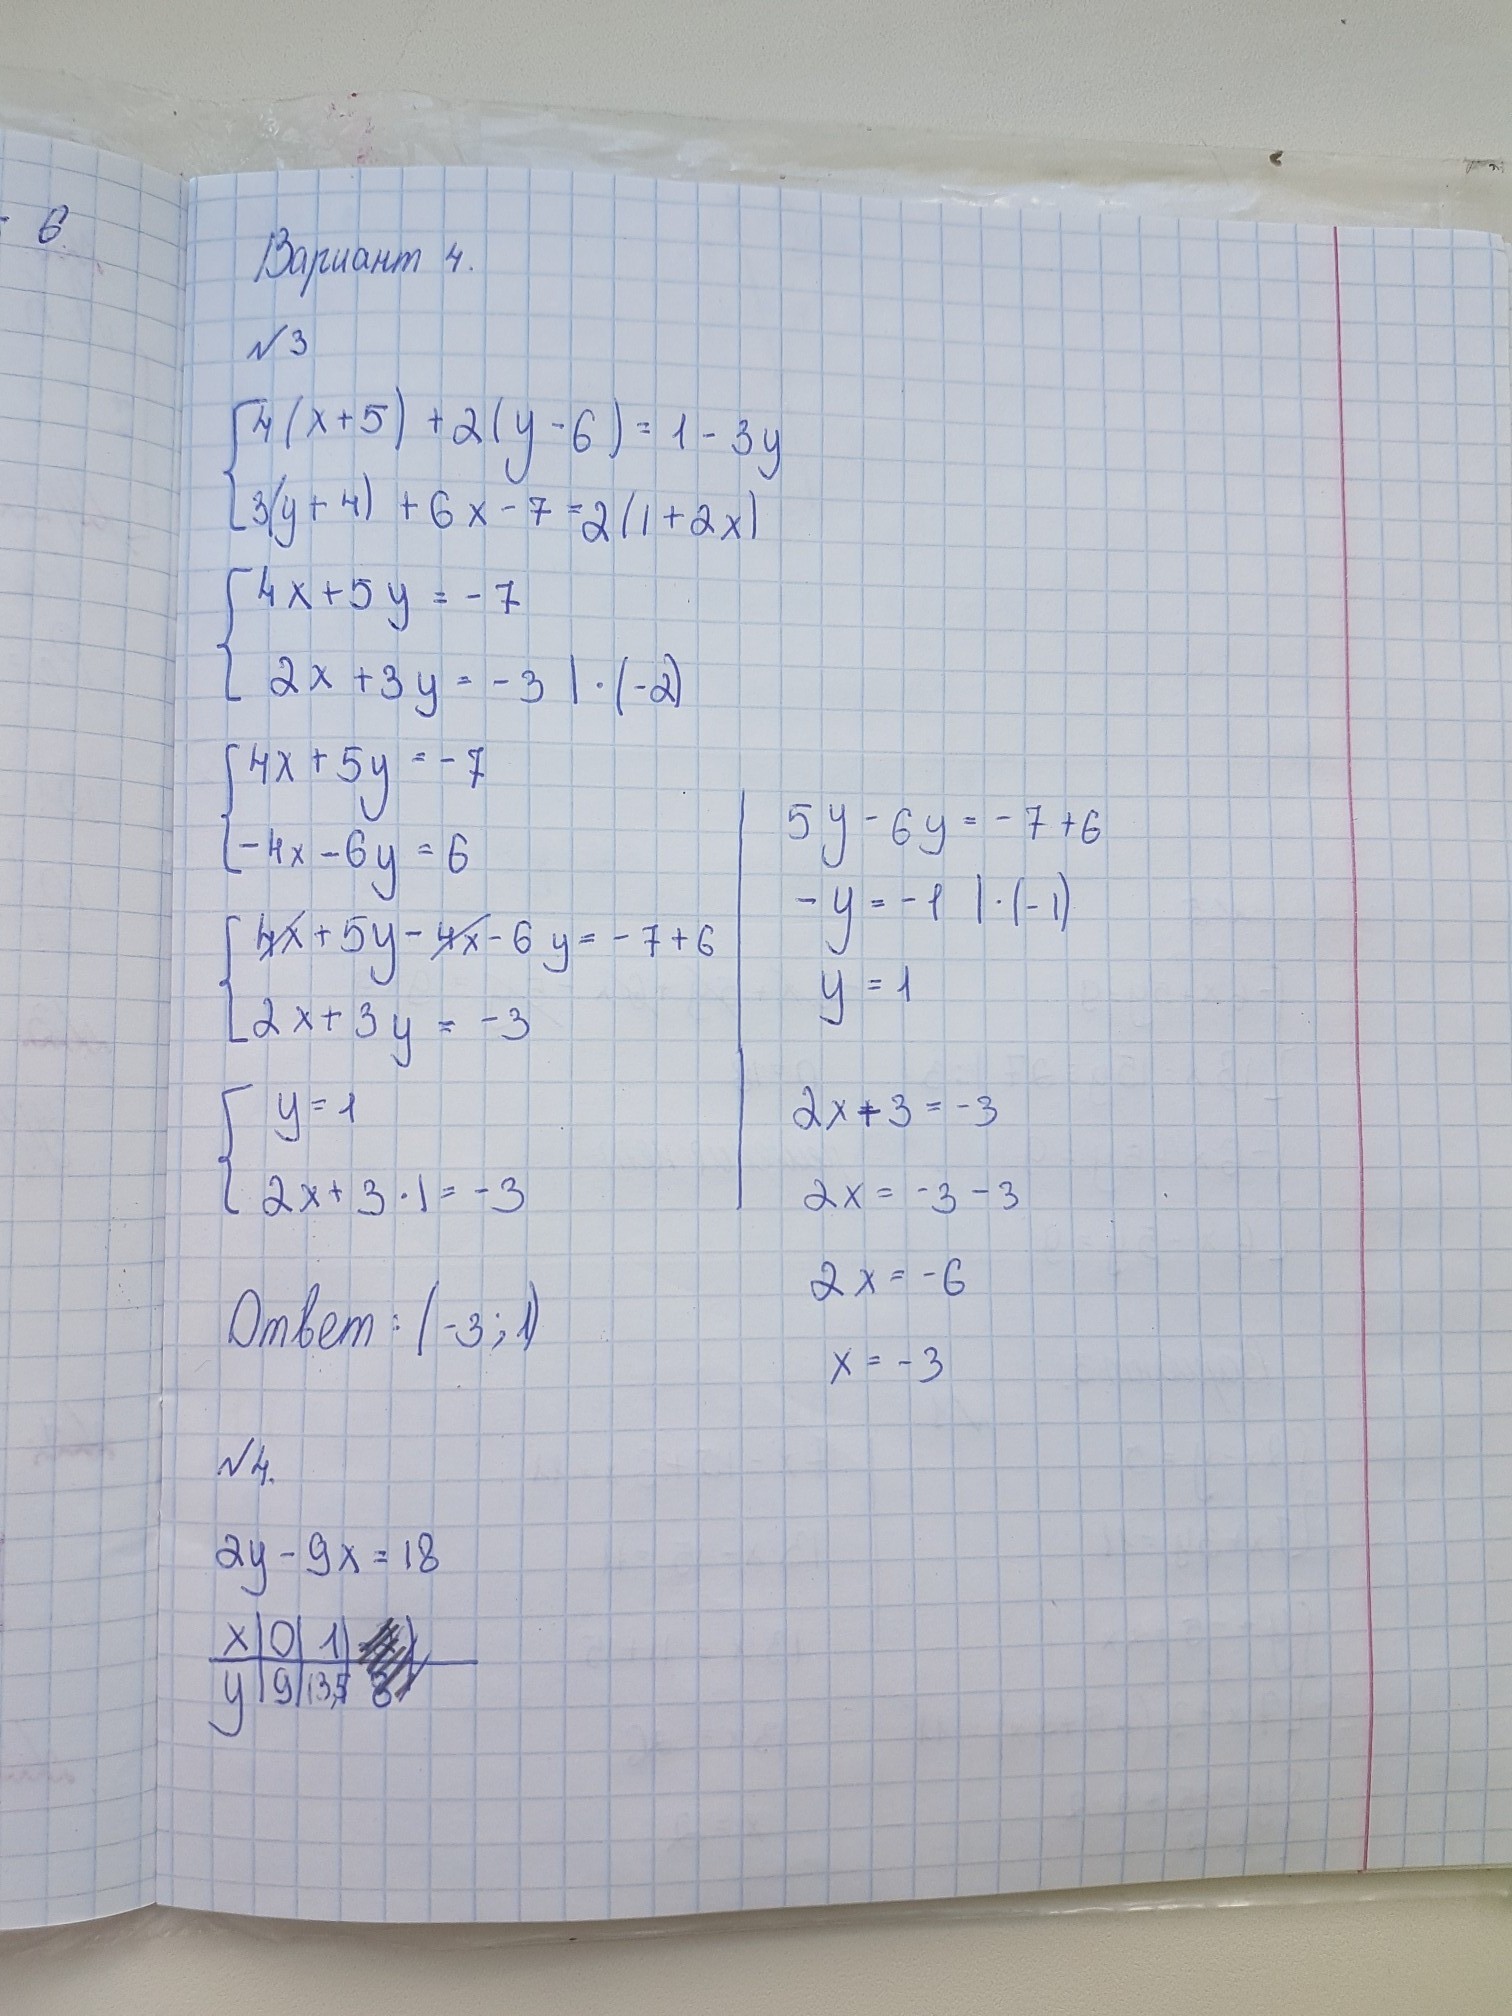 - 6
Вариант 4.
№3
4(x+5) +2(y-6) = 1-3y
3(y+4) +6x-7=2(1+2x)
4x+5y = -7
2x+3y = -3 | · (-2)
4x+5y = -7
-4x-6y = 6
4x+5y-4x-6y = -7+6
2x+3y = -3
y=1
2x+3·1 = -3
Ответ: (-3;1)
5y-6y = -7+6
-y = -1 | · (-1)
y = 1
2x+3 = -3
2x = -3-3
2x = -6
x = -3
№4.
2y-9x=18
x | 0 | 1 |
y | 9 | 13,5